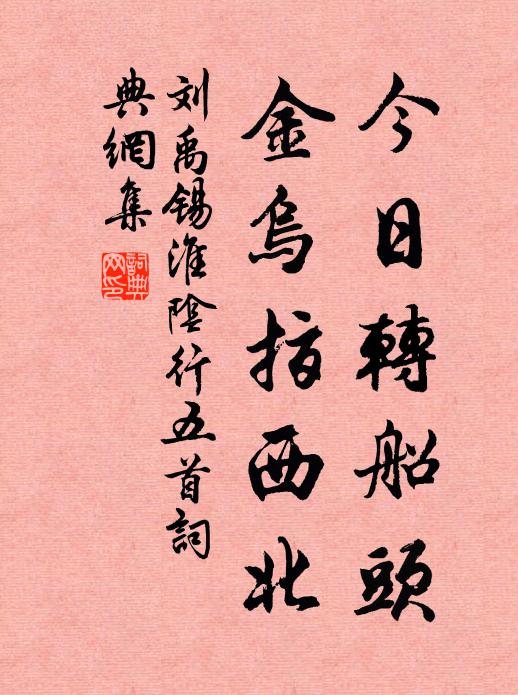 今日轉船頭
金烏指西北
刘禹锡淮陰行五首詞
典網集
詞典
网印